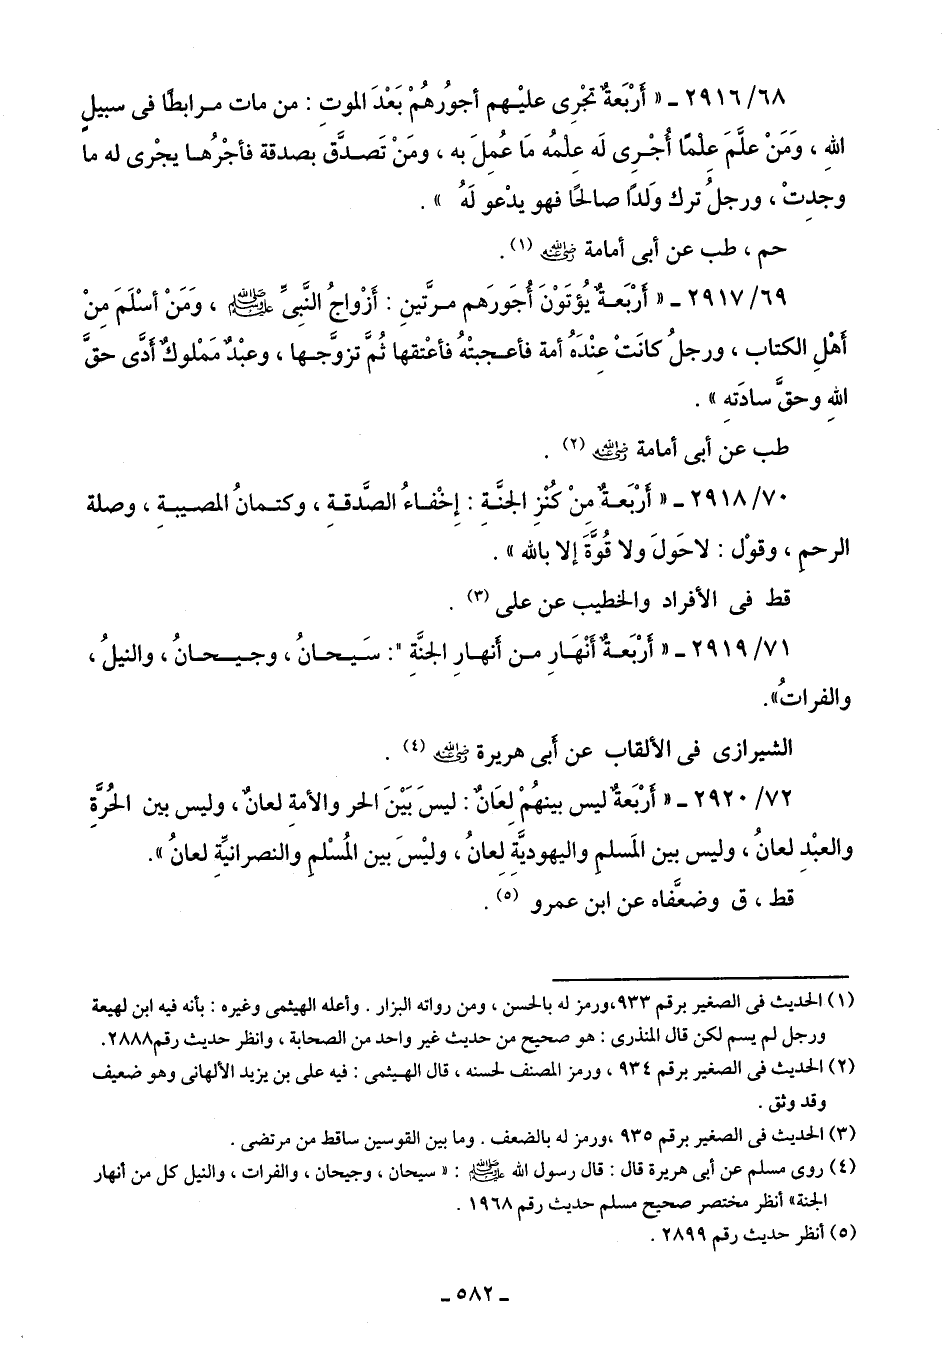 ٢٩١٦/٦٨ ـ « أَرْبَعةٌ تجْرِى عليْـهِم أجورُهُمْ بَعْدَ الموتِ : من مات مرابطًا فى سبيلِ
اللهِ ، وَمَنْ علَّمَ عِلْمًا أُجْـرِى لَه عِلمُه مَا عُمِلَ به ، ومَنْ تَصدَّق بصدقة فأجْرُهـا يجْرِى له ما
وجدِتْ ، ورجلٌ ترك وَلدًا صالحًا فهو يدْعو لَهُ » .
حم ، طب عن أبى أمامة رضي الله عنه (١) .
٢٩١٧/٦٩ ـ « أَرْبَعـةٌ يُؤتَوْنَ أُجُورَهم مرَّتين : أزْواجُ النَّبىِّ ﷺ ، وَمَنْ أسْلَمَ مِنْ
أهْلِ الكتاب ، ورجلٌ كانَتْ عِنْدَهُ أمة فأعـجبتْهُ فأعْتقها ثُمَّ تزوَّجـها ، وعبْدٌ مَمْلوكٌ أدَّى حقَّ
اللهِ وحقَّ سادَتهِ » .
طب عن أبى أمامة رضي الله عنه (٢) .
٢٩١٨/٧٠ ـ « أَرْبَعـةٌ مِنْ كُنْزِ الجنَّـةِ : إخْفـاءُ الصَّدقـةِ ، وكتـمانُ المصـيبـةِ ، وصلة
الرحمِ ، وقوْل : لاحَولَ ولا قُوَّةَ إلا بالله » .
قط فى الأفراد والخطيب عن على (٣) .
٢٩١٩/٧١ ـ « أَرْبَعـةٌ أنْهَارٍ مـن أَنهارِ الجنَّةِ ": سَـيـحـانُ ، وجـيـحـانُ ، والنيلُ ،
والفراتُ».
الشيرازى فى الألقاب عن أبى هريرة رضي الله عنه (٤) .
٢٩٢٠/٧٢ ـ « أَرْبَعةٌ ليس بينهُمْ لِعَانٌ : ليسَ بَيْنَ الحر والأمةِ لعانٌ، وليس بين الحُرَّةِ
والعبْدِ لعانُ ، وليس بين المَسلمِ واليهوديَّةِ لِعانُ ، وليْسَ بين المُسْلمِ والنصرانيَّةِ لعانُ ».
قط ، ق وضعَّفاه عن ابن عمرو (٥) .
(١) الحديث فى الصغير برقم ٩٣٣،ورمز له بالحسن ، ومن رواته البزار . وأعله الهيثمى وغيره : بأنه فيه ابن لهيعة
ورجل لم يسم لكن قال المنذرى : هو صحيح من حديث غير واحد من الصحابة ، وانظر حديث رقم٢٨٨٨.
(٢) الحديث فى الصغير برقم ٩٣٤ ، ورمز المصنف لحسنه ، قال الهيثمى : فيه على بن يزيد الألهانى وهو ضعيف
وقد وثق .
(٣) الحديث فى الصغير برقم ٩٣٥ ،ورمز له بالضعف . وما بين القوسين ساقط من مرتضى .
(٤) روى مسلم عن أبى هريرة قال : قال رسول الله ﷺ : « سيحان ، وجيحان ، والفرات ، والنيل كل من أنهار
الجنة» أنظر مختصر صحيح مسلم حديث رقم ١٩٦٨ .
(٥) أنظر حديث رقم ٢٨٩٩ .
ـ ٥٨٢ ـ